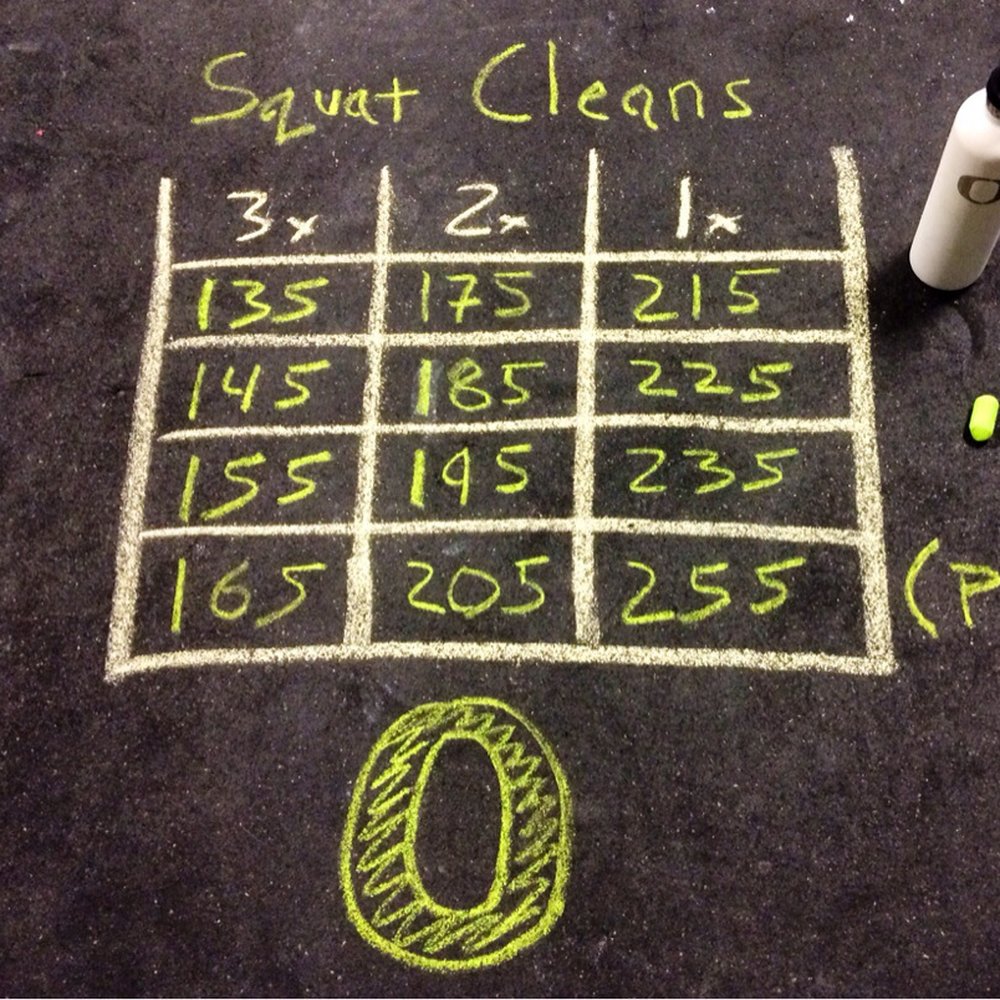 Squat Cleans
3x 2x 1x
135 175 215
145 185 225
155 195 235
165 205 255 (P
O